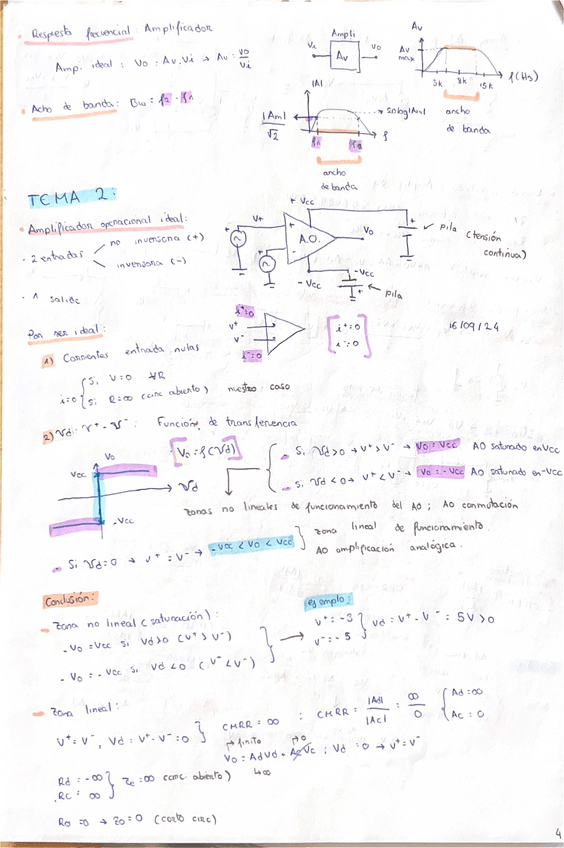 · Respuesta frecuencial: Amplificador
Amp. ideal: Vo = Av.Vi → Av = Vo/Vi
Ampli
Vi
Av
Vo
Av
Av max
3k 8k 15k f(Hz)
ancho de banda
· Acho de banda: BW = f2 - f1
|A|
|Am|/√2
20log|Am|
f1 f2 f
ancho de banda
TEMA 2:
· Amplificador operacional ideal:
· 2 entradas
no inversora (+)
inversora (-)
· 1 salida
+ Vcc
V+
A.O.
Vo
- Vcc
-Vcc
pila (tensión continua)
pila
Por ser ideal:
i+=0
V+
V-
i-=0
i+=0
i-=0
16/09/24
1) Corrientes entrada nulas
i=0
Si V=0 ∀R
Si R=∞ (circ abierto) nuestro caso
2) Vd = V+ - V- : Función de transferencia
Vo
Vcc
Vd
-Vcc
Vo = f(Vd)
Si Vd>0 → V+>V- → Vo=Vcc AO saturado en Vcc
Si Vd<0 → V+<V- → Vo=-Vcc AO saturado en -Vcc
zonas no lineales de funcionamiento del AO; AO conmutación
Si Vd=0 → V+=V- → -Vcc < Vo < Vcc
zona lineal de funcionamiento.
AO amplificación analógica.
Conclusión:
- Zona no lineal (saturación):
- Vo = Vcc si Vd>0 (V+>V-)
- Vo = -Vcc si Vd<0 (V+<V-)
ejemplo:
V+ = -3
V- = -5
Vd = V+ - V- = 5V>0
- Zona lineal:
V+=V-, Vd = V+-V- = 0
CMRR = ∞ : CMRR = |Ad|/|Ac| = ∞/0
Ad=∞
Ac=0
finito
→0
Vo = AdVd + AcVc ; Vd = 0 → V+=V-
↳∞
Rd = -∞
Rc = ∞
Ze = ∞ (circ abierto)
Ro = 0 → Zo = 0 (corto circ)
4